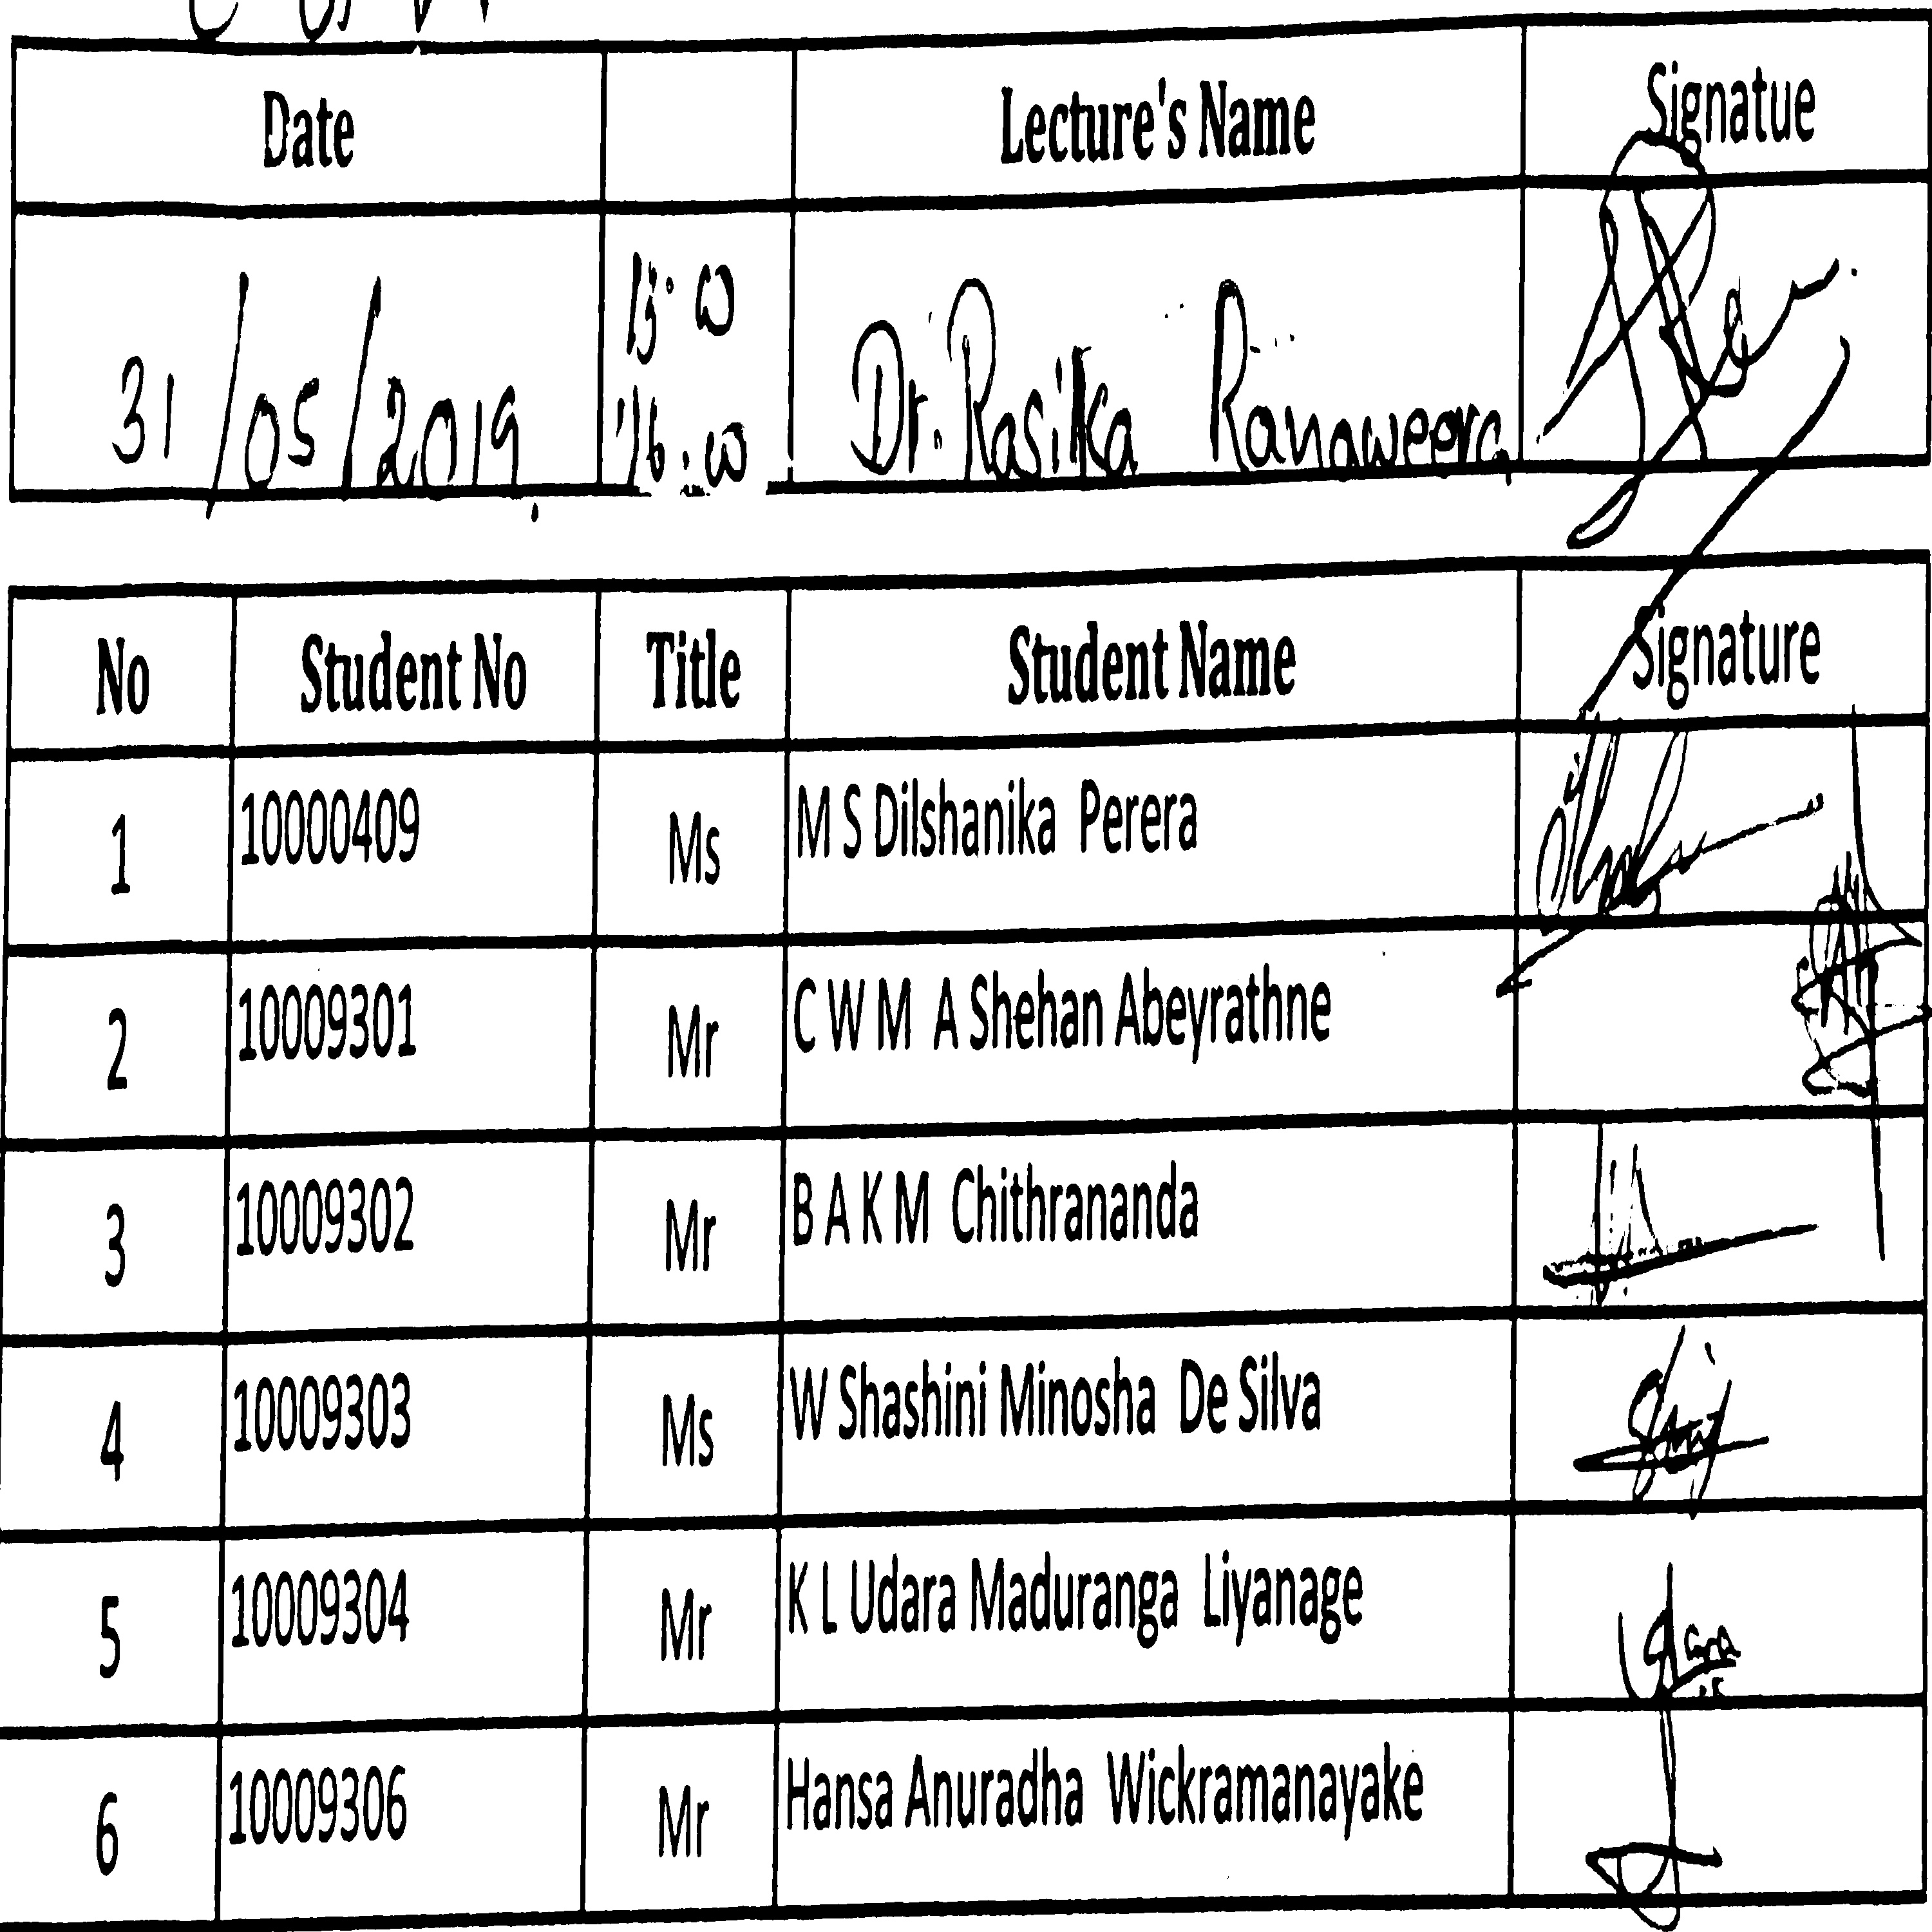 Date Lecture's Name Signatue
15:00
31/05/2019 Dr. Rasika Ranaweera
16:00
No Student No Title Student Name Signature
1 10000409 Ms M S Dilshanika Perera
2 10009301 Mr C W M A Shehan Abeyrathne
3 10009302 Mr B A K M Chithrananda
4 10009303 Ms W Shashini Minosha De Silva
5 10009304 Mr K L Udara Maduranga Liyanage
6 10009306 Mr Hansa Anuradha Wickramanayake